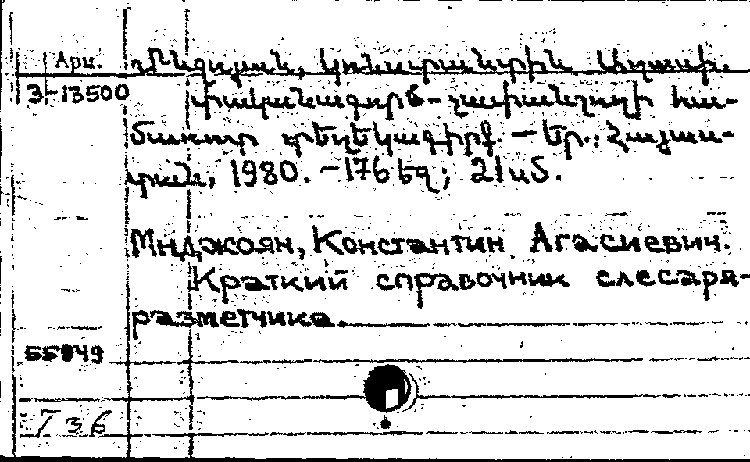 Арм.
Մնջոյան, Կոնստանտին Աղասի.
3-13500
փականագործ-չափանշողի հա-
մառոտ տեղեկագիրք. - Եր., Հայաս-
տան, 1980. - 176 էջ; 21 սմ.
Мнджоян, Константин Агасиевич.
Краткий справочник слесаря-
разметчика.
55849
Т 36